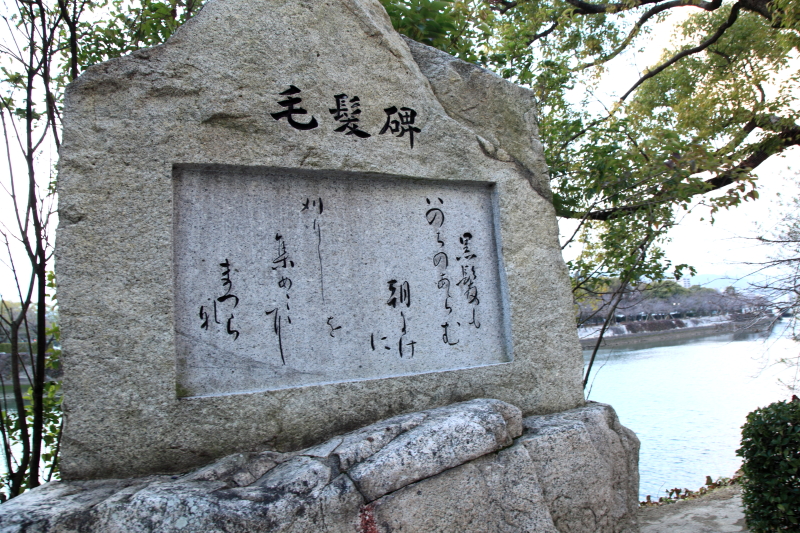 毛髪碑
黒髪も
いのちのあらむ
朝にけ
に
刈りし
を
集めここに
まつら
れ